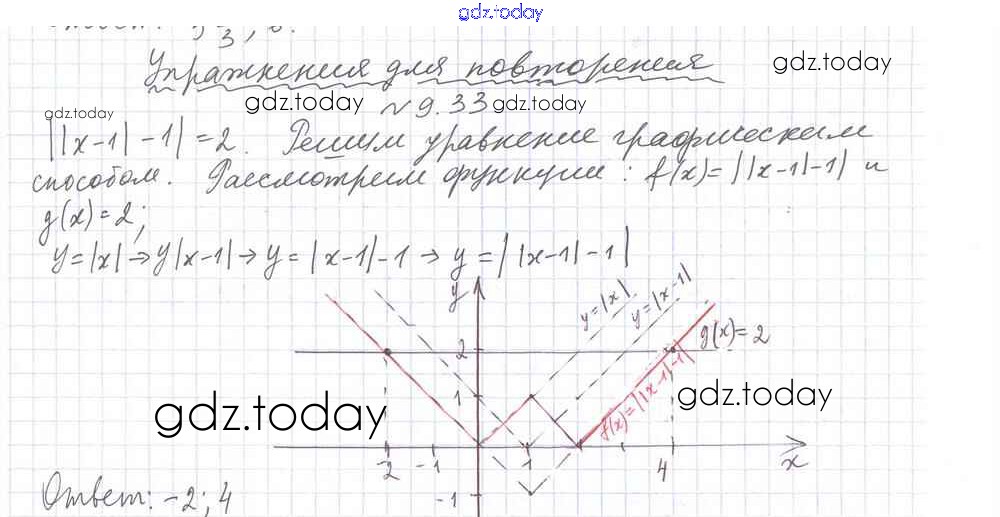 gdz.today
Упражнения для повторения
gdz.today
gdz.today № 9.33 gdz.today
gdz.today
||x-1|-1|=2. Решим уравнение графическим
способом. Рассмотрим функции: f(x)=||x-1|-1| и
g(x)=2;
y=|x|→y|x-1|→y=|x-1|-1→y=||x-1|-1|
y
y=|x|
y=|x-1|
g(x)=2
2
f(x)=||x-1|-1|
1
gdz.today
gdz.today
-2 -1 1 4 x
-1
Ответ: -2; 4